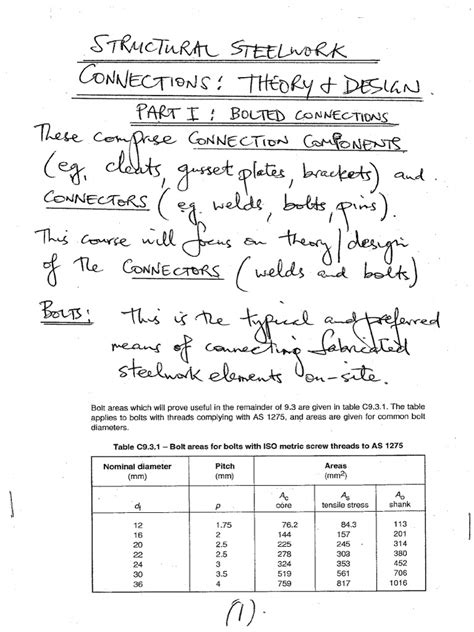 STRUCTURAL STEELWORK
CONNECTIONS: THEORY & DESIGN.
PART I: BOLTED CONNECTIONS
These comprise CONNECTION COMPONENTS
(eg, cleats, gusset plates, brackets) and
CONNECTORS (eg. welds, bolts, pins).
This course will focus on theory/design
of the CONNECTORS (welds and bolts)
BOLTS: This is the typical and preferred
means of connecting fabricated
steelwork elements on-site.
Bolt areas which will prove useful in the remainder of 9.3 are given in table C9.3.1. The table
applies to bolts with threads complying with AS 1275, and areas are given for common bolt
diameters.
Table C9.3.1 – Bolt areas for bolts with ISO metric screw threads to AS 1275
Nominal diameter Pitch Areas
(mm) (mm) (mm²)
Ac As Ao
df p core tensile stress shank
12 1.75 76.2 84.3 113
16 2 144 157 201
20 2.5 225 245 314
22 2.5 278 303 380
24 3 324 353 452
30 3.5 519 561 706
36 4 759 817 1016
(1).